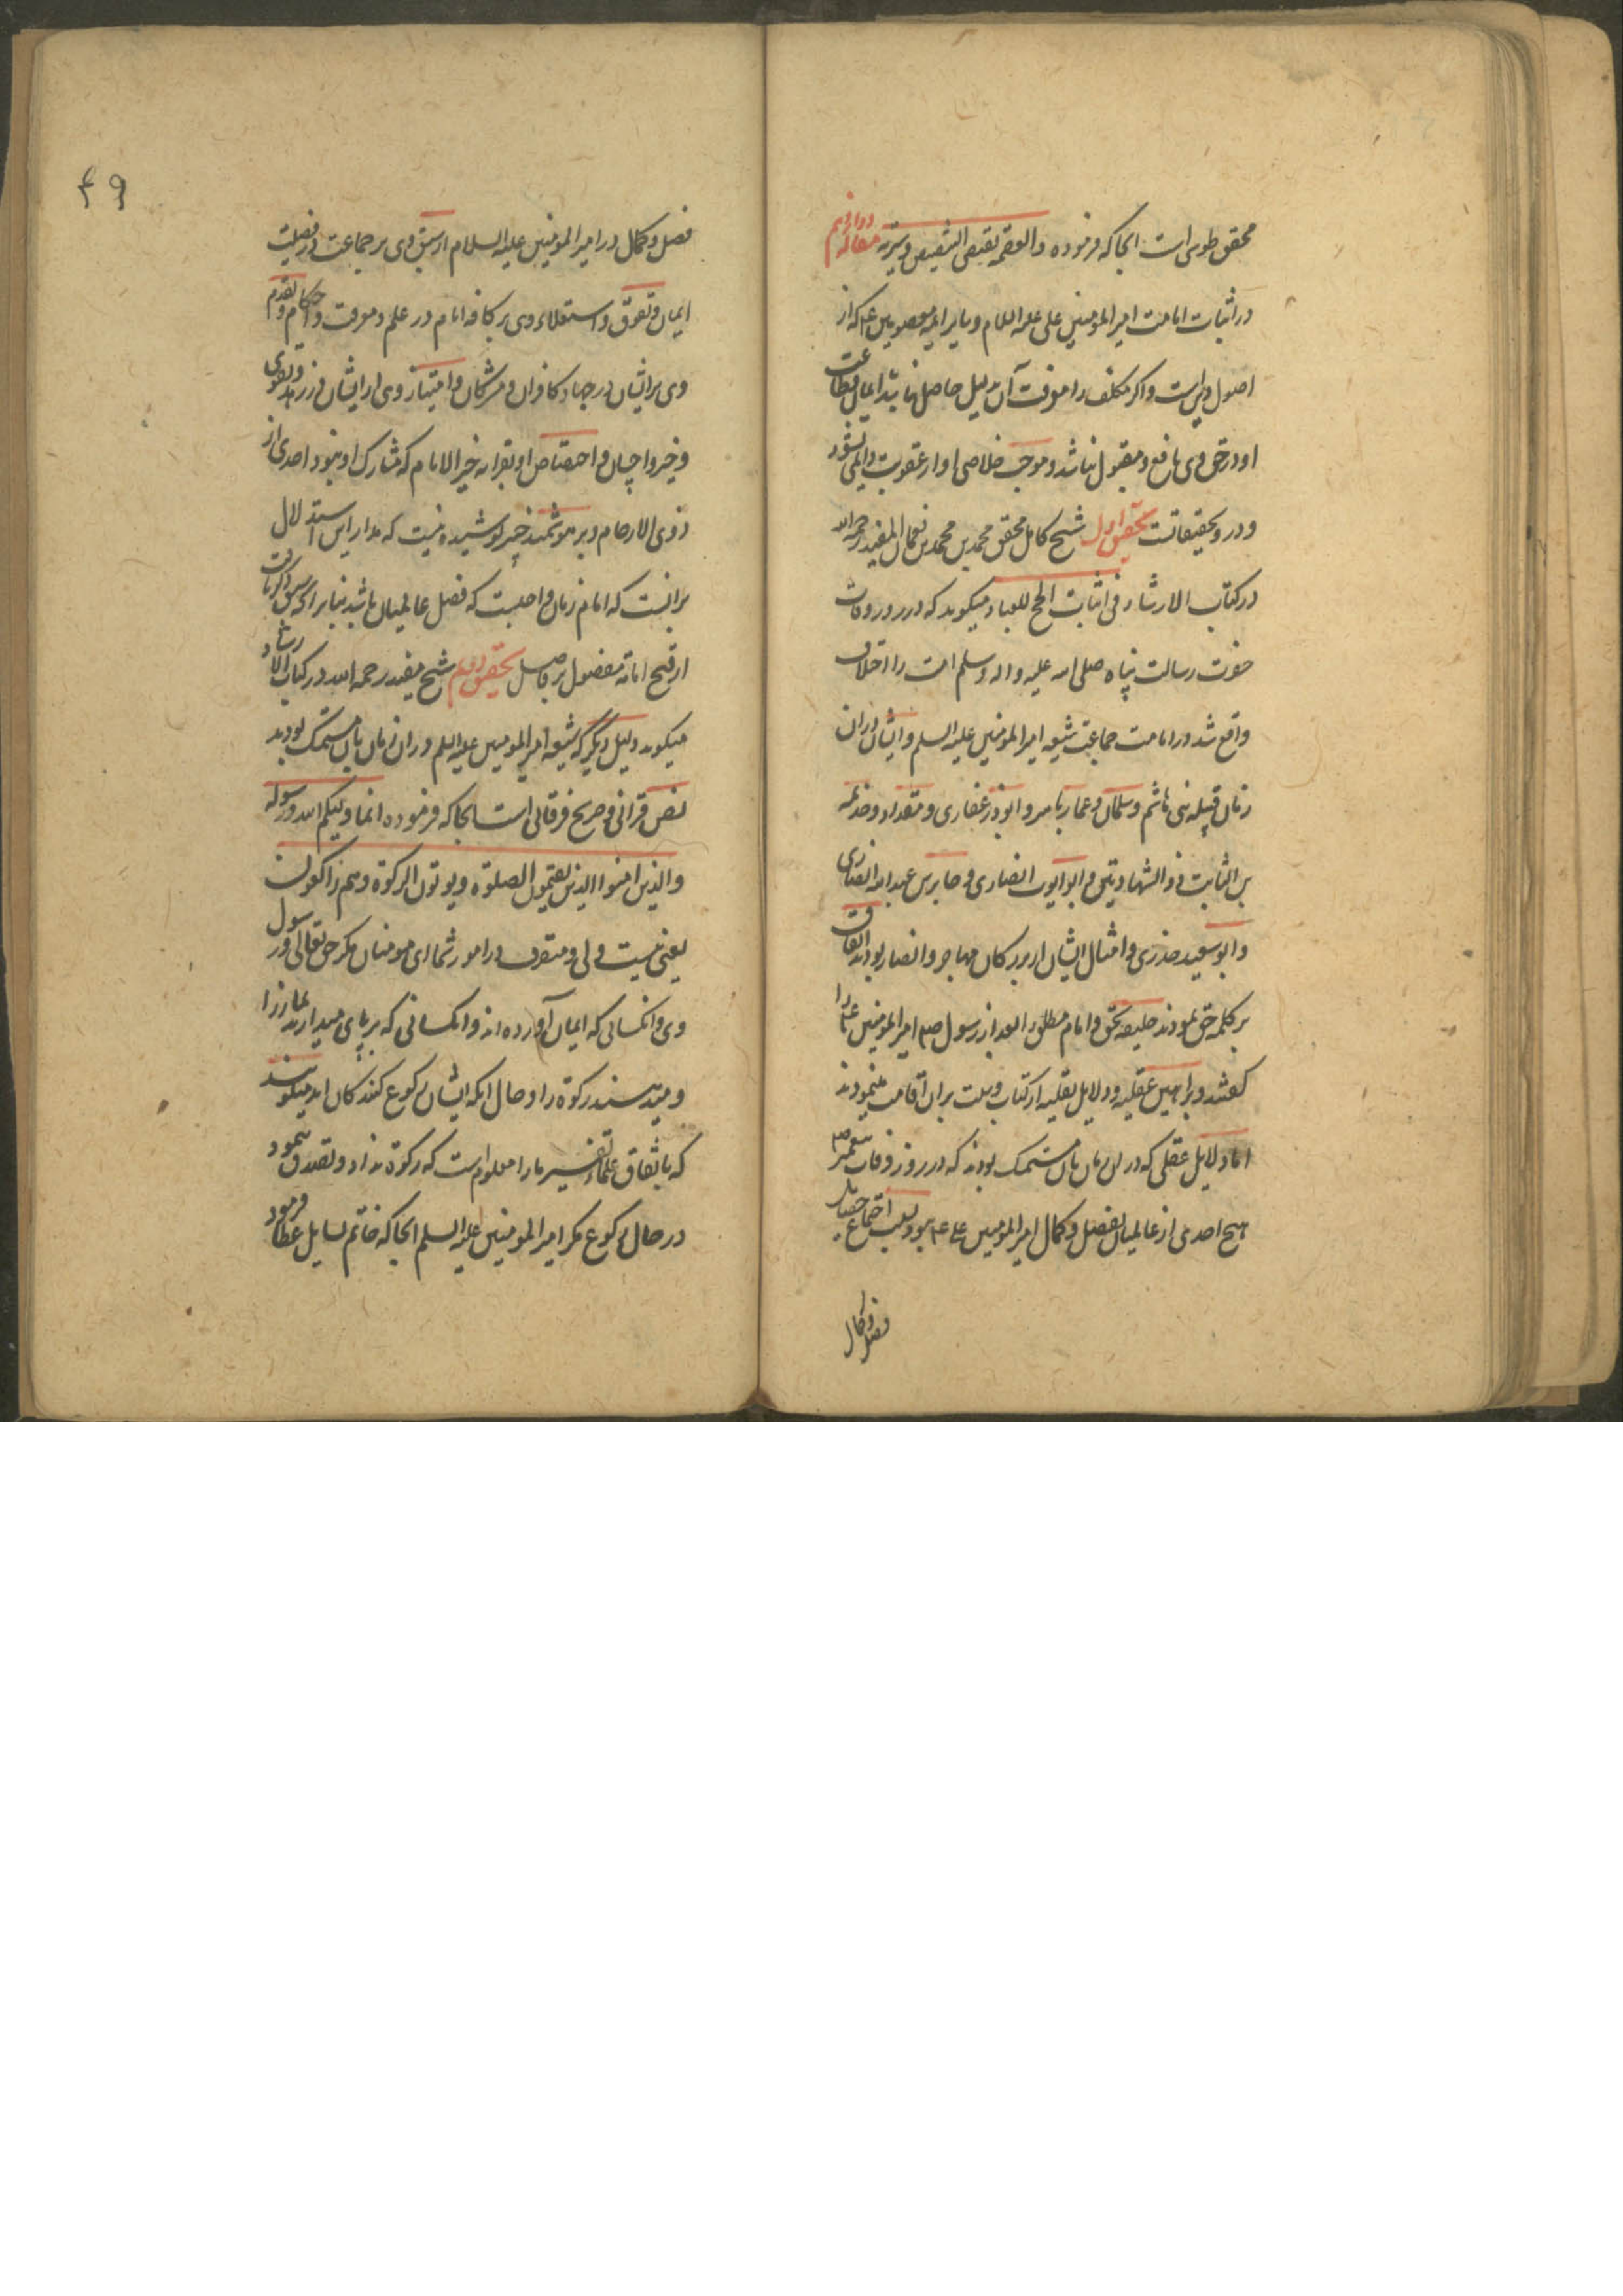 محقق طوسی است انجا که فرموده والعصمة تقتضی التنصیص وسیرته مقاله دوازدهم
در اثبات امامت امیرالمؤمنین علی علیه السلام و سایر ایمه معصومین ع م که از
اصول دین است واکر مکلف را معرفت آن بدلیل حاصل نباشد ایمان و طاعت
او در حق وی نافع و مقبول نباشد و موجب خلاصی او از عقوبت دایمی نشود
و در و تحقیقاتست تحقیق اول شیخ کامل محقق محمد بن محمد بن نعمان المفید رحمه الله
در کتاب الارشاد فی اثبات الحج للعباد میکوید که در روز وفات
حضرت رسالت پناه صلی الله علیه واله وسلم امت را اختلاف
واقع شد در امامت جماعت شیعه امیرالمؤمنین علیه السلم و ایشان دران
زمان قبیله بنی هاشم و سلمان و عمار یاسر و ابوذر غفاری و مقداد و خذیمه
بن الثابت ذوالشهادتین و ابوایوب انصاری و جابر بن عبدالله انصاری
و ابوسعید خدری و امثال ایشان از بزرکان مهاجر و انصار بودند اتفاق
بر کلمه حق نمودند خلیفه بحق و امام مطلق را بعد از رسول صم امیرالمؤمنین علی را
کفتند و براهین عقلیه و دلایل نقلیه از کتاب و سنت بران اقامت مینمودند
اما دلایل عقلی که در ان زمان بان متمسک بودند که در روز وفات پیغمبر صم
هیچ احدی از عالمیان بفضل و کمال امیرالمؤمنین علی ع م نبود بسبب اجتماع خصال
فضل و کمال
۴۹
فضل و کمال در امیرالمؤمنین علیه السلام از سبق وی بر جماعت در فضیلت
ایمان و تفوق و استعلاء وی بر کافه انام در علم و معرفت و احکام و تقدم
وی بر ایشان در جهاد کافران و مشرکان و امتیاز وی از ایشان در زهد و تقوی
و خیر و احسان و اختصاص او بقرابه خیرالانام که مشارک او نبود احدی از
ذوی الارحام و بر هوشمند خبیر پوشیده نیست که مدار این استدلال
برانست که امام زمان واجبست که افضل عالمیان باشد بنابر انکه
از قبح امامة مفضول بر فاضل تحقیق دویم شیخ مفید رحمه الله در کتاب الارشاد
میکوید دلیل دیکر که شیعه امیرالمؤمنین علیه السلم دران زمان بان متمسک بودند
نص قرانی و صریح فرقانی است انجا که فرموده انما ولیکم الله و رسوله
والذین امنوا الذین یقیمون الصلوة ویوتون الزکوة وهم راکعون
یعنی نیست ولی و متصرف در امور شما ای مومنان مکر حق تعالی و رسول
وی و انکسانی که ایمان آورده اند و انکسانی که برپای میدارند نماز را
و میدهند زکوة را و حال انکه ایشان رکوع کنندکان اند میکویند
که باتفاق علماء تفسیر ما را معلوم است که زکوة نداد و تصدق ننمود
در حال رکوع مکر امیرالمؤمنین علیه السلم انجا که خاتم بسایل عطا فرمود